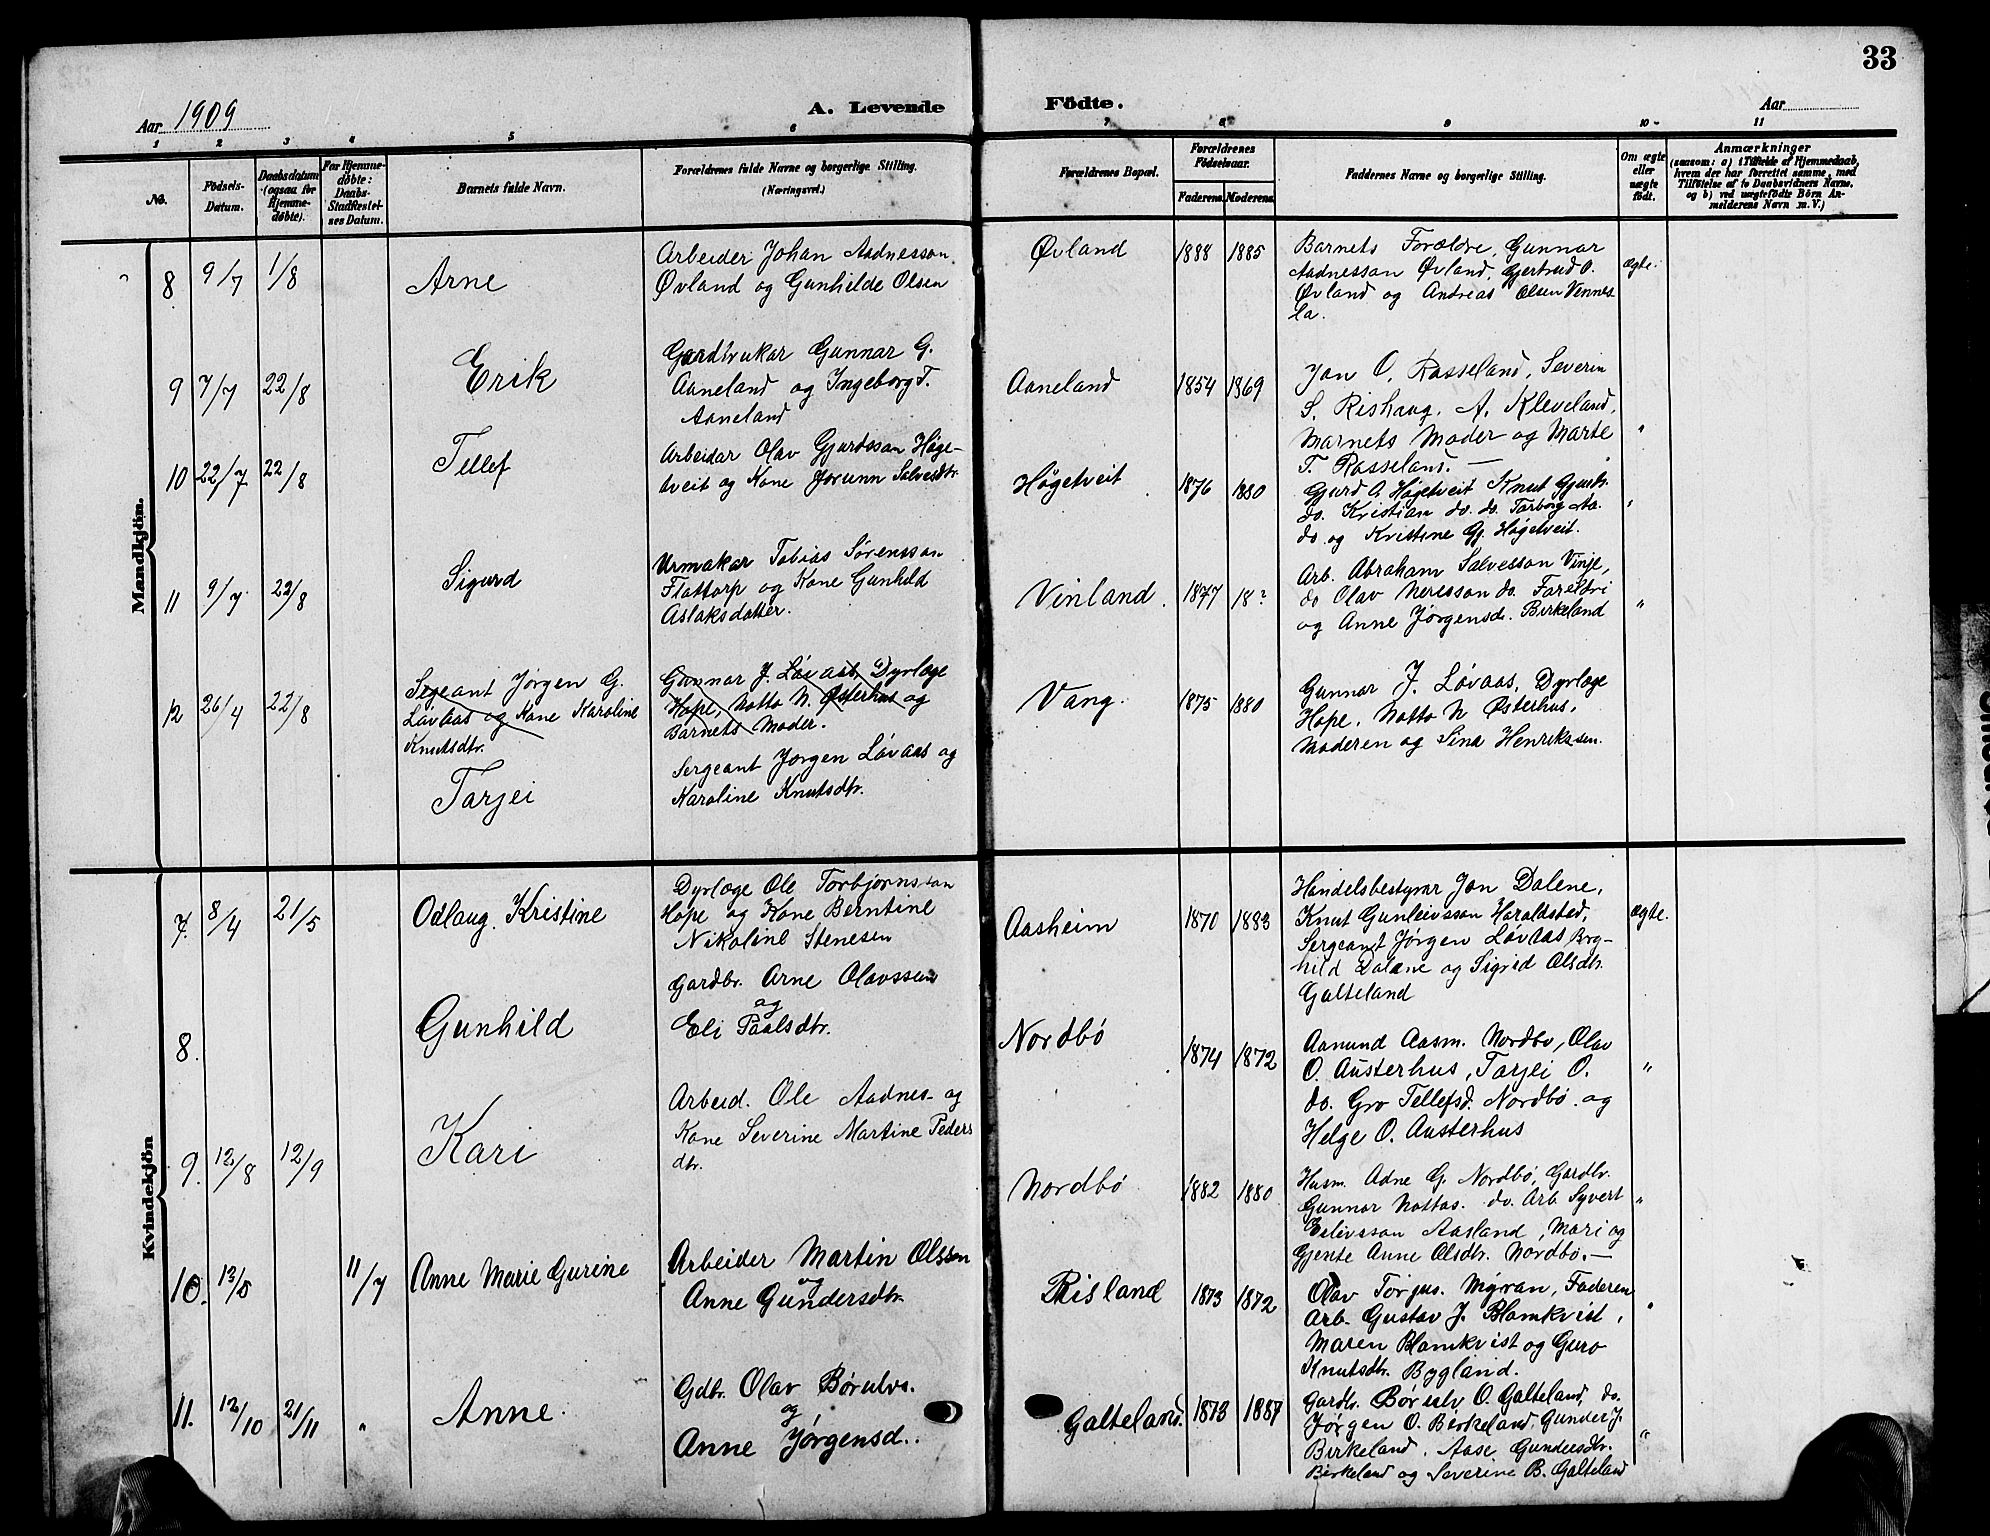 33
Aar 1909
A. Levende
Födte.
Aar
1 2 3 4 5 6 7 8 9 10 11
No.
Födsels-Datum.
Daabsdatum (ogsaa for Hjemme-døbte).
For Hjemme-døbte: Daabs-Stadfæstel-ses Datum.
Barnets fulde Navn.
Forældrenes fulde Navne og borgerlige Stilling. (Næringsvei.)
Forældrenes Bopæl.
Forældrenes Födselsaar.
Faderens. Moderens.
Faddernes Navne og borgerlige Stilling.
Om ægte eller uægte født.
Anmærkninger
(saasom: a) i Tilfælde af Hjemmedaab, hvem der har forrettet samme, med Tilføielse af to Daabsvidners Navne, og b) ved uægtefödte Börn An-melderens Navn m. V.)
Mandkjön.
8 9/7 1/8 Arne
Arbeider Johan Aadnesson
Øvland og Gunhilde Olsen
Øvland 1888 1885
Barnets Forældre, Gunnar
Aadnesson Øvland, Gjertrud O.
Øvland og Andreas Olsen Vennes-
la.
ægte.
9 7/7 22/8 Erik
Gardbrukar Gunnar G.
Aaneland og Ingeborg T.
Aaneland
Aaneland 1854 1869
Jon O. Rasseland, Severin
S. Rishaug, A. Kleveland,
Marnets Moder og Marte
T. Rasseland. —
"
10 22/7 22/8 Tellef
Arbeidar Olav Gjurdsson Høge-
tveit og Kone Jorunn Salvesdtr.
Høgetveit 1876 1880
Gjurd A Høgetveit Knut Gjurds.
do. Kristian do. do. Tarborg Aa.
do og Kristine Gj. Høgetveit.
"
11 9/7 22/8 Sigurd
Urmakar Tobias Sørensson
Flattorp og Kone Gunhild
Aslaksdatter.
Vinland. 1877 18?
Arb. Abraham Salvesson Vinje,
do Olav Neresson do. Foreldri
og Anne Jørgensd. Birkeland
"
12 26/4 22/8
Sigeant Jørgen G.
Løvaas og Kone Karoline
Knutsdtr.
Tarjei
Gunnar J. Løvaas, Dyrlæge
Hope, Notto N. Østerhus og
Barnets Moder.
Sergeant Jørgen Løvaas og
Karoline Knutsdtr.
Vang. 1875 1880
Gunnar J. Løvaas, Dyrlæge
Hope, Notto N Østerhus,
Moderen og Sina Henriksen.
Kvindekjön
7. 8/4 21/5 Odlaug Kristine
Dyrlæge Ole Torbjørnsson
Hope og Kone Berntine
Nikoline Stenesen
Aasheim 1870 1883
Handelsbestyrar Jon Dalene,
Knut Gunleivsson Haraldsted,
Sergeant Jørgen Løvaas Borg-
hild Dalene og Sigrid Olsdtr.
Galteland
ægte.
8. Gunhild
Gardbr. Arne Olavssen
og
Eli Paalsdtr.
Nordbø 1874 1872
Aanund Aasm. Nordbø, Olav
O. Austerhus, Tarjei O.
do. Gro Tellefsd. Nordbø og
Helge O. Austerhus
"
9. 12/8 12/9 Kari
Arbeid. Ole Aadnes- og
Kone Severine Martine Peders
dtr.
Nordbø 1882 1880
Husm. Adne G. Nordbø, Gardbr.
Gunnar Nottos. do. Arb. Syvert
Eelivsson Aasland, Mari og
Gjente Anne Olsdtr. Nordbø. —
"
10. 13/5 11/7 Anne Marie Gurine
Arbeider Martin Olsson
og
Anne Gundersdtr.
Risland 1873 1872
Olav Torjus. Myran, Faderen
Arb. Gustav J. Blomkvist,
Maren Blomkvist og Guro
Knutsdtr. Bygland.
"
11. 12/10 21/11 " Anne.
Gdbr. Olav Børulvs.
og
Anne Jørgensd.
Galteland. 1873 1887
Gardbr. Børulv O. Galteland, do.
Jørgen O. Birkeland, Gunder J.
Birkeland, Aase Gundersdtr.
Birkeland og Severine B. Galteland
"